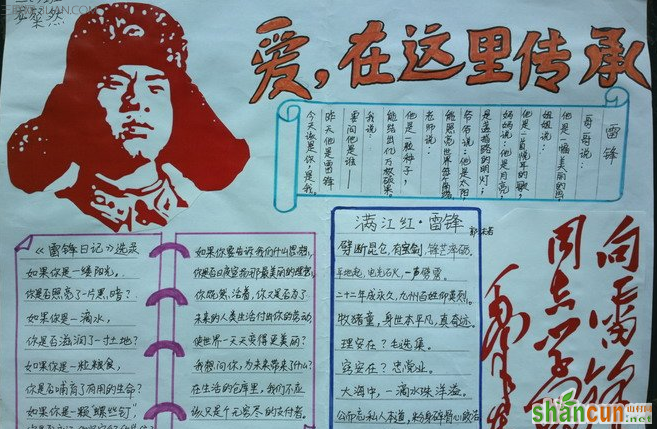 爱，在这里传承
雷锋
哥哥说：
他是一幅美丽的
姐姐说：
他是一首悦耳的歌，
妈妈说：他是月亮，
是蓝指路的明灯；
爷爷说：他是太阳
能照亮世界每个角落。
老师说：
他是一粒种子，
能结出亿万颗硕果。
我说：
要问他是谁——
昨天他是雷锋
今天该是你，是我。
《雷锋日记》选录
如果你是一缕阳光，
你是否照亮了一片黑暗？
如果你是一滴水，
你是否滋润了一寸土地？
如果你是一粒粮食，
你是否哺育了有用的生命？
如果你是一颗螺丝钉，
如果你要告诉我们什么思想，
你是否日夜宣扬那最美丽的理想？
你既然活着，你又是否为了
未来的人类生活付出你的劳动，
使世界一天天变得更美丽？
我想问你，为未来带来了什么？
在生活的仓库里，我们不应
该只是个无穷尽的支付者。
满江红·雷锋
郭沫若
劈断昆仑，有宝剑，锋芒卓砺。
平地起，电光石火，一声霹雳。
二十二年成永久，九州百姓仰英烈。
牧猪童，身世本平凡，真奇迹。
理安在？毛选集。
穷安在？忠党业。
大海中，一滴水珠洋溢。
公而忘私人本道，粉身碎骨心政治
向雷锋
同志学习
毛泽东
shancun
山村网
.net